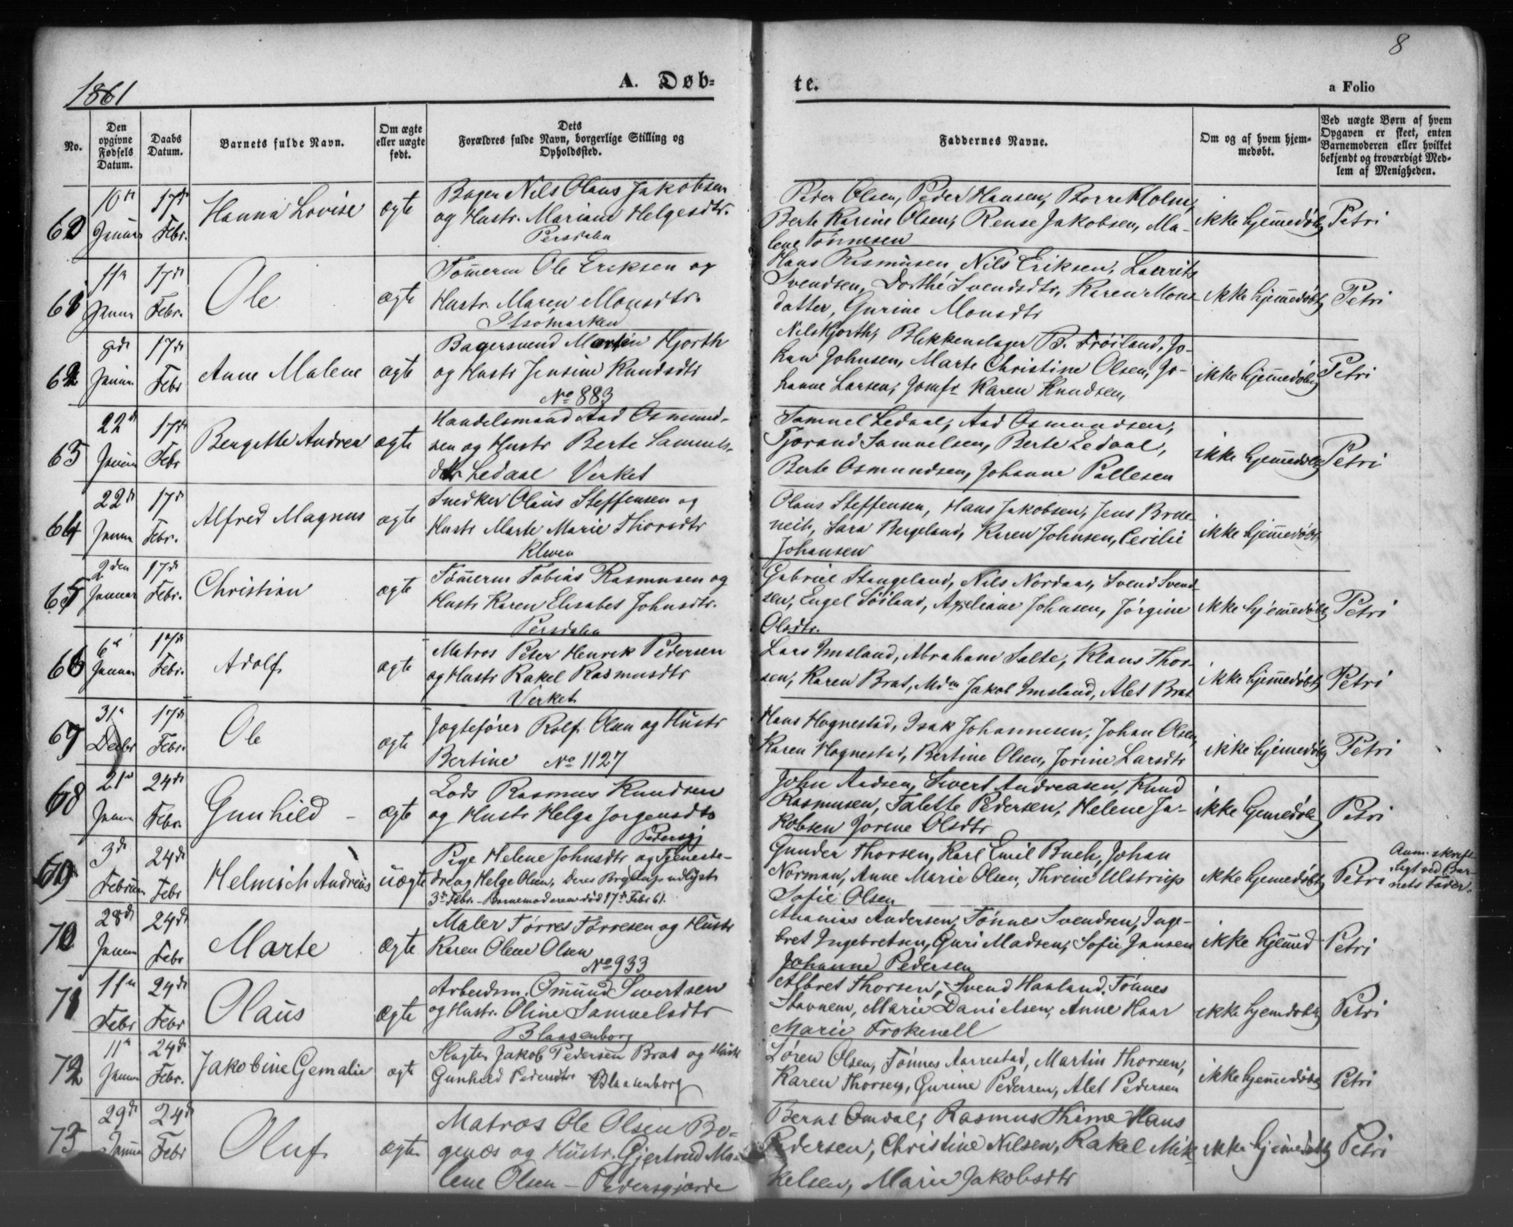 8
1861
A. Døb-
te.
a Folio
No.
Den opgivne Fødsels Datum.
Daabs Datum.
Barnets fulde Navn.
Om ægte eller uægte født.
Dets Forældres fulde Navn, borgerlige Stilling og Opholdssted.
Faddernes Navne.
Om og af hvem hjemmedøbt.
Ved uægte Børn af hvem Opgaven er skeet, enten Barnemoderen eller hvilket bekjendt og troværdigt Medlem af Menigheden.
60 10de Januar 17de Febr. Hanna Lovise ægte
Bager Nils Olaus Jakobsen
og Hustr. Mariane Helgesdtr.
Persdahn
Peter Olsen, Peder Hansen, Børre Holm,
Berte Karine Olsen, Rense Jakobsen, Ma-
lene Tønnesen
ikke hjemmedøbt Petri
61 11te Januar 17de Febr. Ole ægte
Tømerm Ole Eriksen og
Hustr. Maren Monsdtr.
Hans Rasmusen Nils Eriksen, Lauritz
Svendsen, Dorthe Svendsdtr, Karen Mons-
datter, Gurine Monsdtr
ikke hjemmedøbt Petri
62 Januar 17de Febr Anne Malene ægte
Bagersvend Martin Hjorth
og Hustr Jensine Knudsdtr
No 883
Nils Hjorth, Blikkenslager B. Frøiland, Jo-
han Johnsen, Marte Christine Olsen, Jo-
hanne Larsen, Jomfr Karen Knudsen,
ikke hjemmedøbt Petri
63 22de Januar 17de Febr Bergitte Andrea ægte
Handelsmand Aad Osmund-
sen og Hustr Berte Samuels-
dtr Ledaal Verket
Samuel Ledaal, Aad Osmundsen,
Tjorand Samuelsen, Berte Ledaal,
Berte Osmundsen, Johanne Pallesen
ikke hjemmedøbt Petri
64 22de Januar 17de Febr. Alfred Magnus ægte
Snedker Olaus Steffensen og
Hustr Marte Marie Thorsdtr
Kleven
Olaus Steffensen, Hans Jakobsen, Jens Brue-
neit, Sara Bergeland, Karen Johnsen, Cecilie
Johansen
ikke hjemmedøbt
65 2den Januar 17de Febr. Christian ægte
Tømerm Tobias Rasmusen og
Hustr Karen Elisabet Johnsdtr.
Persdahn
Gabriel Stangeland, Nils Nordaas, Svend Svend-
sen, Engel Søiland, Apeliane Johnsen, Jørgine
Olsdtr.
ikke hjemmedøbt Petri
66 6te Januar 17de Febr. Adolf ægte
Matros Peter Henrik Pedersen
og Hustr Rakel Rasmusdtr
Verket
Lars Imsland, Abraham Salte, Klaus Thor-
sen, Karen Brat, Mdm Jakob Imsland, Alet Brat
ikke hjemmedøbt Petri
67 31te Decbr 17de Febr. Ole ægte
Jagtefører Rolf Olsen og Hustr
Bertine No 1127
Hans Hognestad, Isak Johannesen, Johan Olsen,
Karen Hognestad, Bertine Olsen, Jorine Larsdtr
ikke hjemmedøbt Petri
68 21de Januar 24de Febr. Gunhild ægte
Lods Rasmus Knudsen
og Hustr Helga Jørgensdtr
Pedersgj
John Aadsen, Sivert Andreasen, Knud
Rasmusen, Talette Pedersen, Helene Ja-
kobsen Jorine Olsdtr
ikke hjemmedøbt Petri
69 3de Februar 24de Febr Helmich Andreas uægte
Pige Helene Johnsdtr og Tjeneste-
dreng Helge Olsen,
3de Febr. Barnemoderen død 17de Febr 61.
Gunder Thorsen, Karl Emil Buch, Johan
Norman, Anne Marie Olsen, Threine Ulstrup
Sofie Olsen
ikke hjemmedøbt Petri
Anm. skrift-
ligt ved Bar-
nets Fader.
70 28de Januar 24de Febr Marte ægte
Maler Tørres Tørresen og Hustr
Karen Olene Olsen
No 933
Ananias Andersen, Tønnes Svendsen, Inge-
bret Ingebretsen, Guri Madsen, Sofie Jansen
Johanne Pedersen
ikke hjemmed Petri
71 11te Febr 24de Febr Olaus ægte
Arbeidsm. Osmund Sivertsen
og Hustr. Oline Samuelsdtr
Blaasenborg
Albret Thorsen, Svend Haaland, Tønnes
Stavnem, Marie Danielsen, Anne Haar
Marie Trokenell
ikke hjemdøbt Petri
72 11te Januar 24de Febr. Jakobine Gemalie ægte
Slagter Jakob Pedersen Brat og Hustr
Gunhild Pedersdtr Blaasenborg
Søren Olsen, Tønnes Aarrestad, Martin Thorsen,
Karen Thorsen, Gurine Pedersen, Alet Pedersen
ikke hjemmedøbt Petri
73 29de Januar 24de Febr Oluf ægte
Matros Ole Olsen Bo-
genæs og Hustr. Gjertrud Ma-
lene Olsen - Pedersgjerde
Bernt Omdal, Rasmus Thime Hans
Pedersen, Christine Nilsen, Rakel Mik-
kelsen, Marie Jakobsdtr
ikke hjemmedøbt Petri